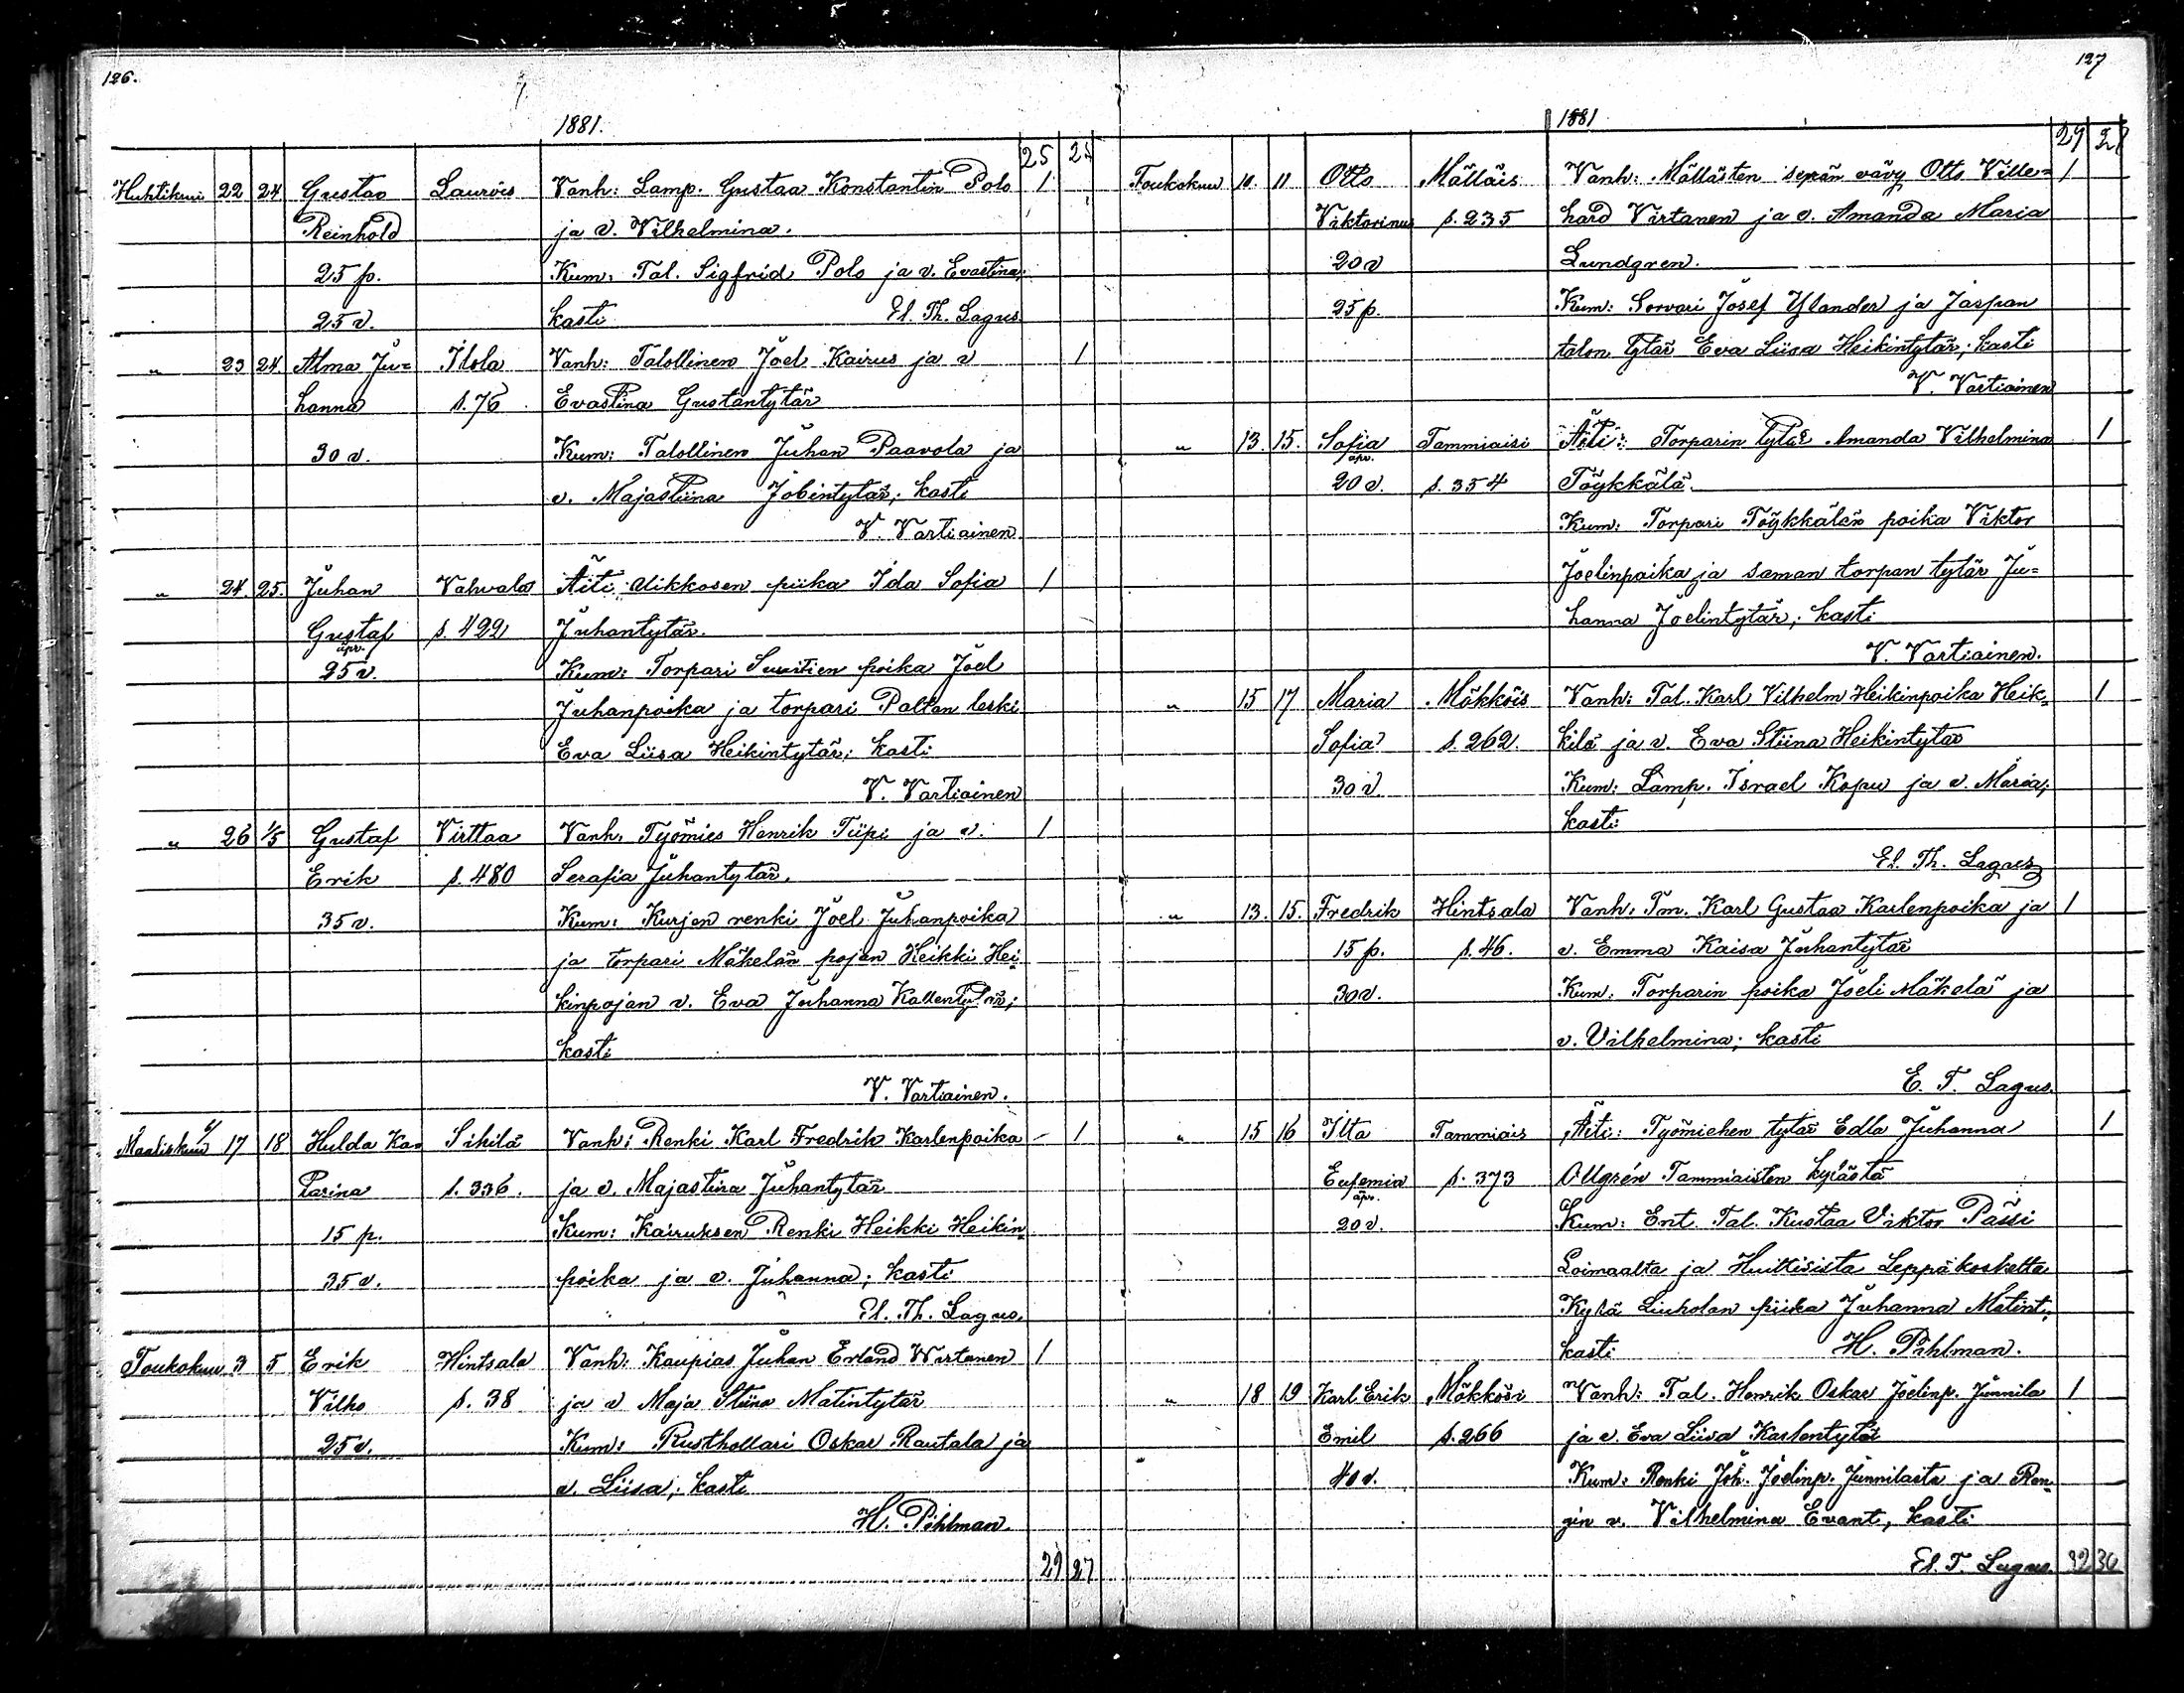 126.
1881.
25 25
Huhtikuu 22 24 Gustav Lauróis Vanh: Lamp. Gustaa Konstantin Polo 1
Reinhold ja v. Vilhelmina.
25 p. Kum: Tal. Sigfrid Polo ja v. Evastina;
25 v. kasti El. Th. Lagus.
" 23 24. Alma Ju= Itola Vanh: Talollinen Joel Kairus ja v 1
hanna s. 76 Evastina Gustantytär
30 v. Kum: Talollinen Juhan Paavola ja
v. Majastiina Jobintytär; kasti
V. Vartiainen.
" 24. 25. Juhan Vahvala Äiti: Uikkosen piika Ida Sofia 1
Gustaf s. 422 Juhantytär.
äpr.
25 v. Kum: Torpari poika Joel
Juhanpoika ja torpari Paltan leski
Eva Liisa Heikintytär; kasti
V. Vartiainen
" 26 1/5 Gustaf Virttaa Vanh: Työmies Henrik Tiipi ja v. 1
Erik s. 480 Serafia Juhantytär.
35 v. Kum: Kurjen renki Joel Juhanpoika
ja torpari Mäkelän pojan Heikki Hei=
kinpojan v. Eva Juhanna Kallentytär;
kasti
V. Vartiainen.
Maaliskuu 17 18 Hulda Ka= Sikilä Vanh: Renki Karl Fredrik Karlenpoika – 1
tarina s. 336. ja v. Majastina Juhantytär
15 p. Kum: Kairuksen Renki Heikki Heikin=
35 v. poika ja v. Juhanna; kasti
El. Th. Lagus.
Toukokuu 3 5 Erik Hintsala Vanh: Kaupias Juhan Erland Wirtanen 1
Vilho s. 38 ja v Maja Stiina Matintytär
25 v. Kum: Rusthollari Oskar Rautala ja
v. Liisa; kasti
H. Pihlman.
29 27
127
1881
29 27
Toukokuu 10. 11 Otto Mälläis Vanh: Mälläisten sepän vävy Otto Ville= 1
Viktorinus s. 235 hard Virtanen ja v. Amanda Maria
20 v Lundgren.
25 p. Kum: Sorvari Josef Ylander ja Jaspan
talon tytär Eva Liisa Heikintytär; kasti
V. Vartiainen
" 13. 15. Sofia Tammiaisi Äiti: Torparin tytär Amanda Vilhelmina 1
äpr.
20 v. s. 354 Töykkälä.
Kum: Torpari Töykkälän poika Viktor
Joelinpoika ja saman torpan tytär Ju=
hanna Joelintytär; kasti
V. Vartiainen.
" 15 17 Maria Mökköis Vanh: Tal. Karl Vilhelm Heikinpoika Heik= 1
Sofia s. 262. kilä ja v. Eva Stiina Heikintytär
30 v. Kum: Lamp. Israel Kopu ja v. Maria;
kasti
El. Th. Lagus
" 13. 15. Fredrik Hintsala Vanh: Tm. Karl Gustaa Karlenpoika ja 1
15 p. s. 46. v. Emma Kaisa Juhantytär
30 v. Kum: Torparin poika Joeli Mäkelä ja
v. Vilhelmina; kasti
E. T. Lagus.
" 15 16 Ilta Tammiais Äiti: Työmiehen tytär Edla Juhanna 1
Eufemia s. 373 Ollgrén Tammiaisten kylästä
äpr.
20 v. Kum: Ent. Tal. Kustaa Viktor Passi
Loimaalta ja Huittisista Leppäkosketta
Kylä Liuholan piika Juhanna Matint.
kasti H. Pihlman.
" 18 19 Karl Erik Mökköisi Vanh: Tal. Henrik Oskar Joelinp. Junnila 1
Emil s. 266 ja v. Eva Liisa Karlentytär
40 v. Kum: Renki Joh. Joelinp. Junnilasta ja Ren=
gin v. Vilhelmina Evant., kasti
El. T. Lagus. 32 30